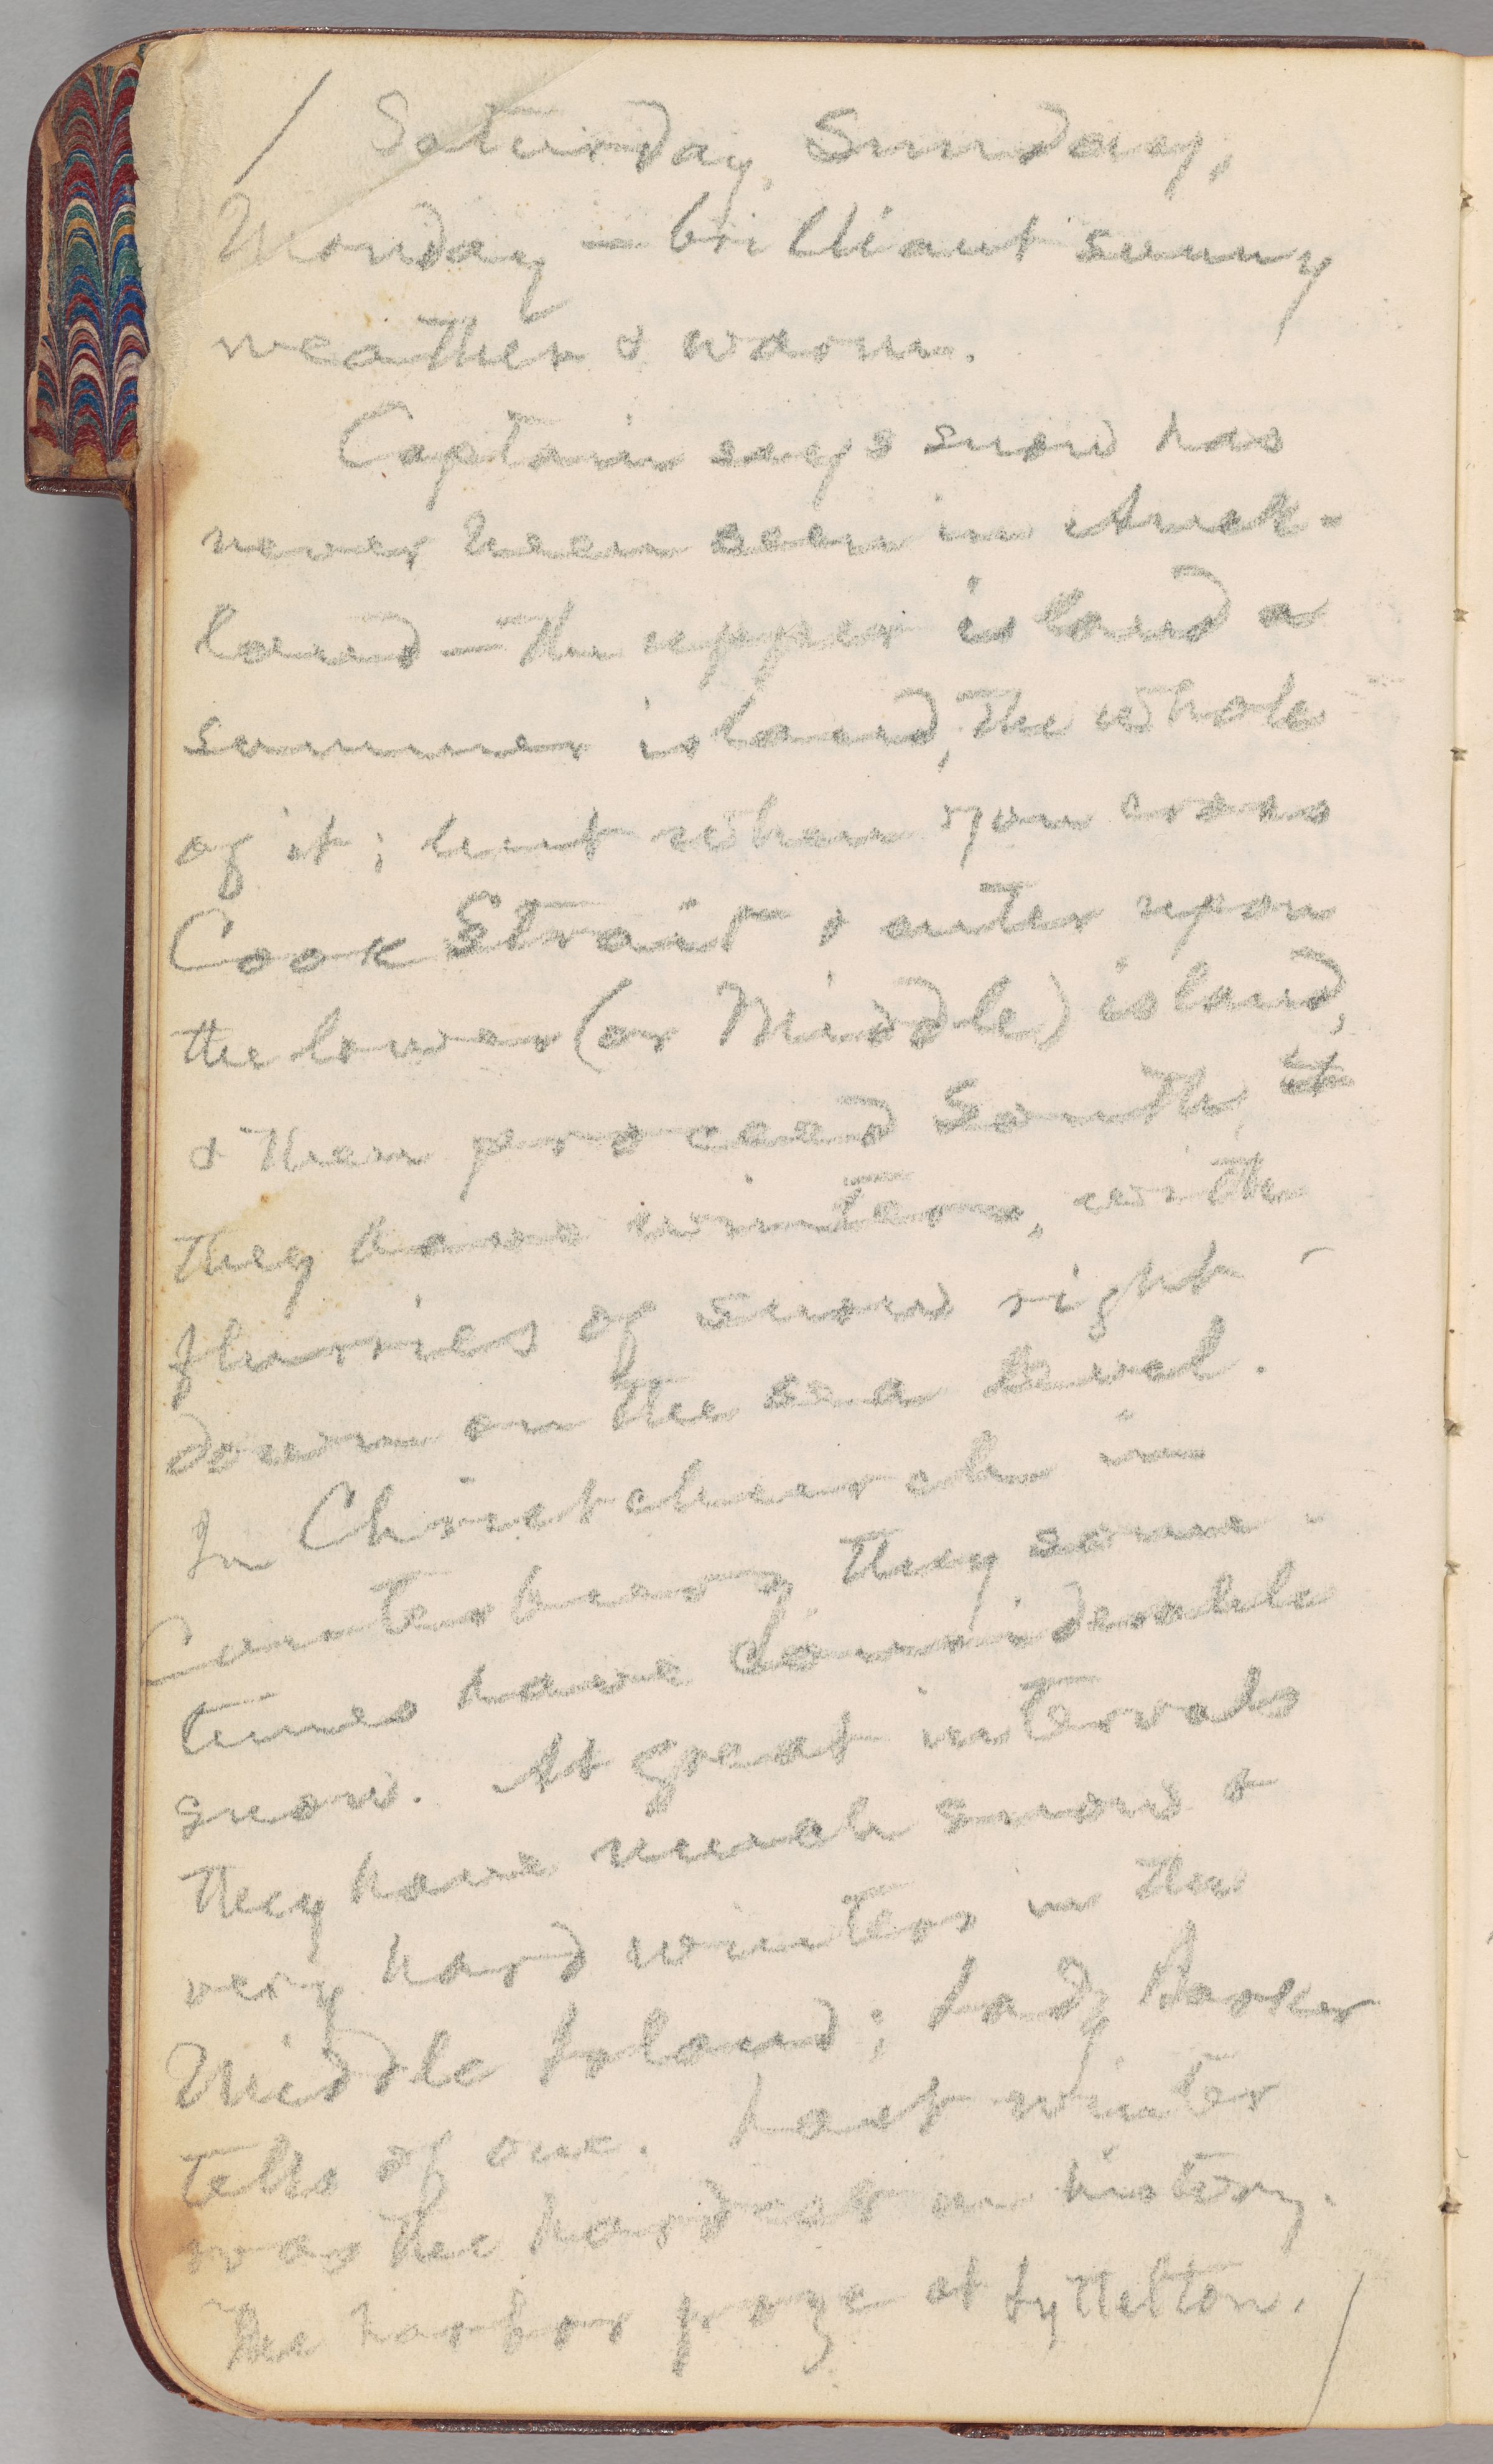 / Saturday, Sunday,
Monday — brilliant sunny
weather & warm.
Captain says snow has
never been seen in Auck-
land — the upper island a
summer island, the whole
of it; but when you cross
Cook Strait & enter upon
the lower (or Middle) island,
& then proceed South, it
they have winters, with
flurries of snow right
down on the sea level.
In Christchurch in
Canterbury they some-
times have considerable
snow. At great intervals
they have much snow &
very hard winters in the
Middle Island; Lady Barker
tells of one. Last winter
was the hardest in history.
The harbor froze at Lyttelton. /